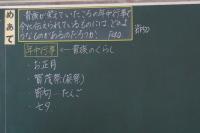 めあて
貴族が栄えていたころの年中行事で
今に伝えられているものには、どのよ
うなものがあるのだろうか。
年中行事 ← 貴族のくらし
・お正月
・賀茂祭(葵祭)
・節句…たんご
・七夕
節句